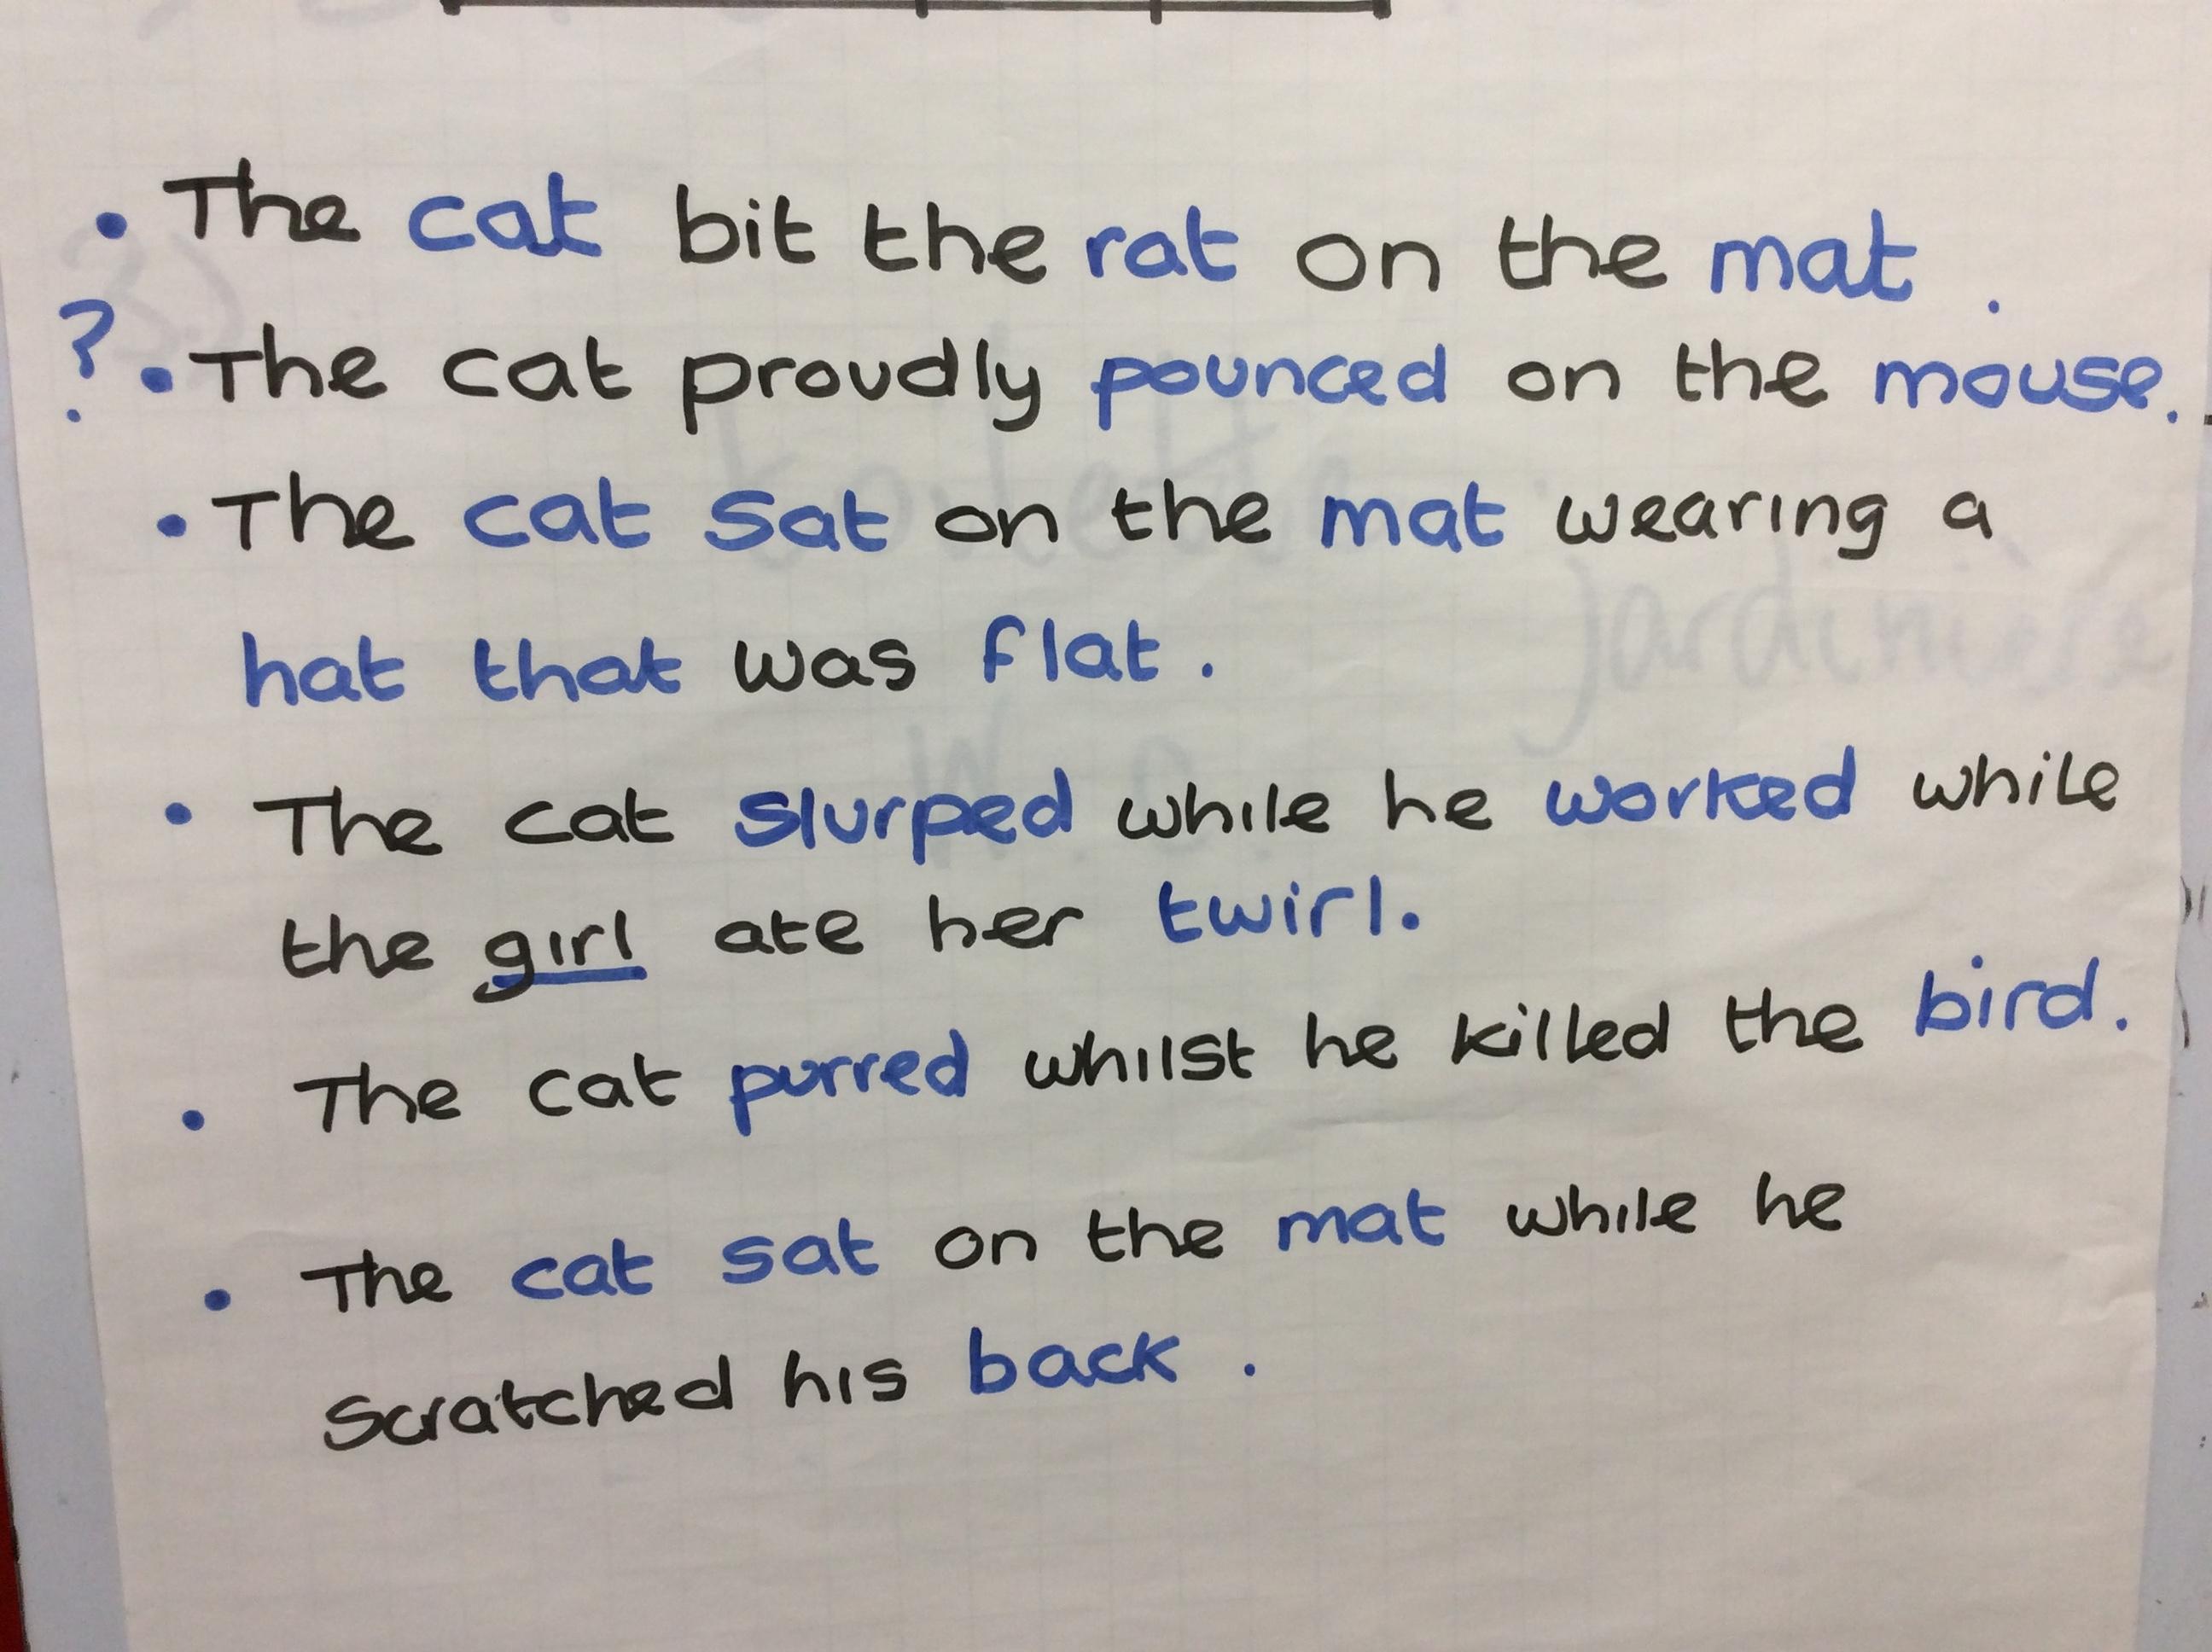 • The cat bit the rat on the mat .
? • The cat proudly pounced on the mouse.
• The cat sat on the mat wearing a
hat that was flat .
• The cat slurped while he worked while
the girl ate her twirl.
• The cat purred whilst he killed the bird.
• The cat sat on the mat while he
scratched his back .